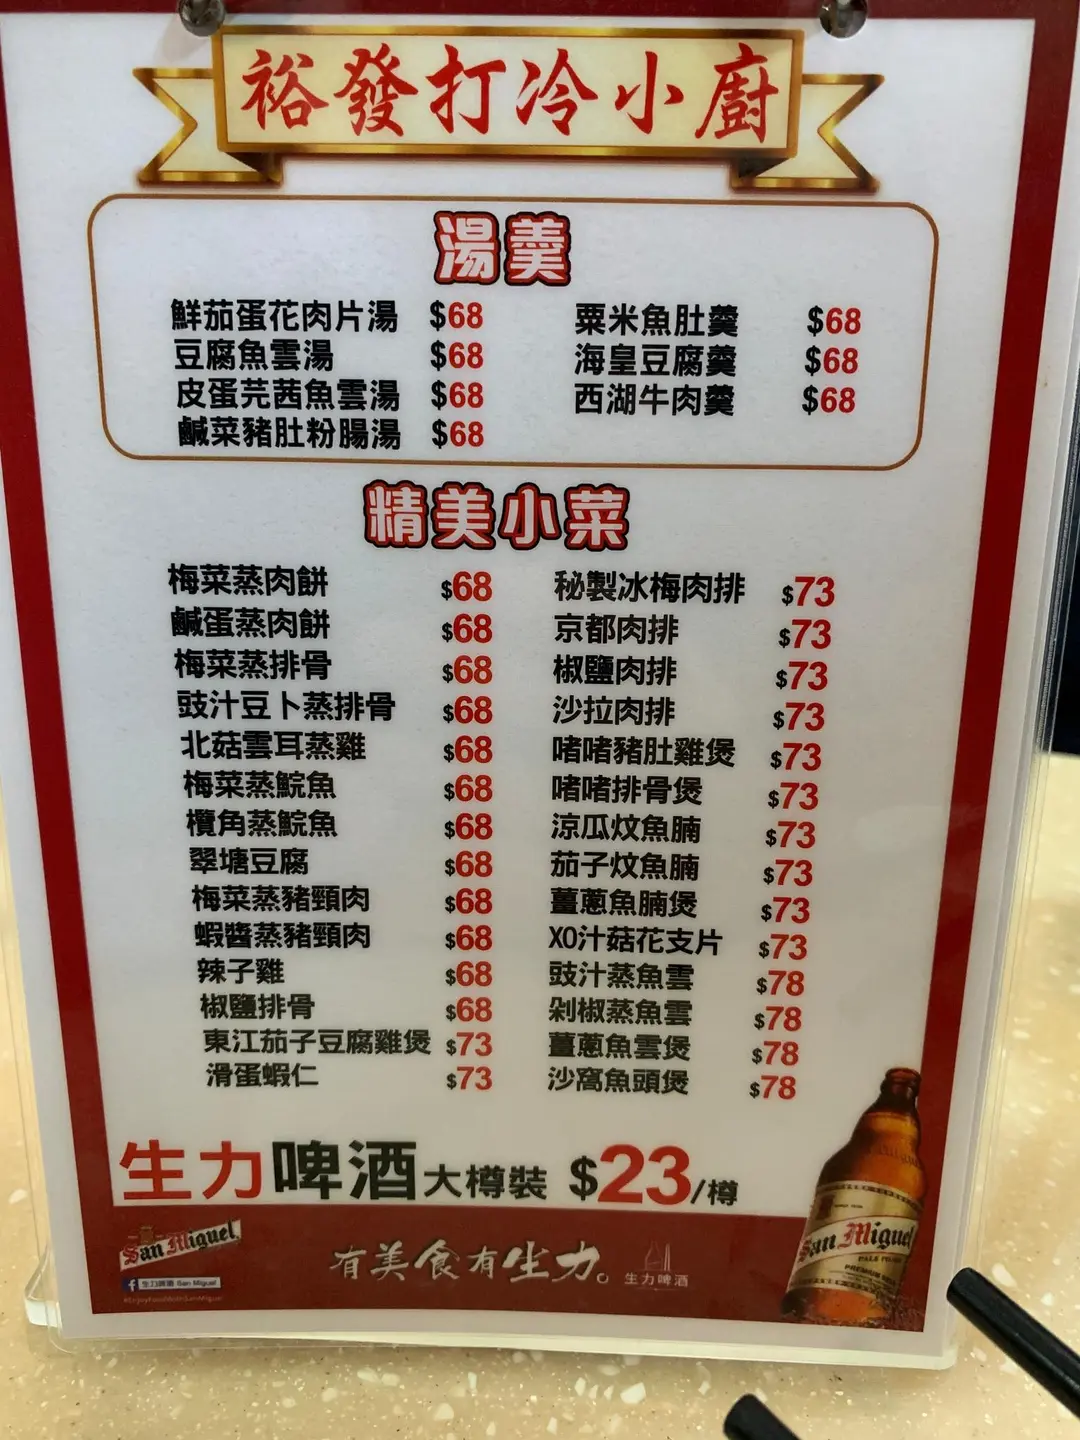 裕發打冷小廚
湯羹
鮮茄蛋花肉片湯 $68
豆腐魚雲湯 $68
皮蛋芫茜魚雲湯 $68
鹹菜豬肚粉腸湯 $68
粟米魚肚羹 $68
海皇豆腐羹 $68
西湖牛肉羹 $68
精美小菜
梅菜蒸肉餅 $68
鹹蛋蒸肉餅 $68
梅菜蒸排骨 $68
豉汁豆卜蒸排骨 $68
北菇雲耳蒸雞 $68
梅菜蒸鯇魚 $68
欖角蒸鯇魚 $68
翠塘豆腐 $68
梅菜蒸豬頸肉 $68
蝦醬蒸豬頸肉 $68
辣子雞 $68
椒鹽排骨 $68
東江茄子豆腐雞煲 $73
滑蛋蝦仁 $73
秘製冰梅肉排 $73
京都肉排 $73
椒鹽肉排 $73
沙拉肉排 $73
啫啫豬肚雞煲 $73
啫啫排骨煲 $73
涼瓜炆魚腩 $73
茄子炆魚腩 $73
薑蔥魚腩煲 $73
XO汁菇花支片 $73
豉汁蒸魚雲 $78
剁椒蒸魚雲 $78
薑蔥魚雲煲 $78
沙窩魚頭煲 $78
生力啤酒大樽裝 $23/樽
San Miguel
生力啤酒 San Miguel
有美食有生力。
生力啤酒
San Miguel
PALE PILSEN